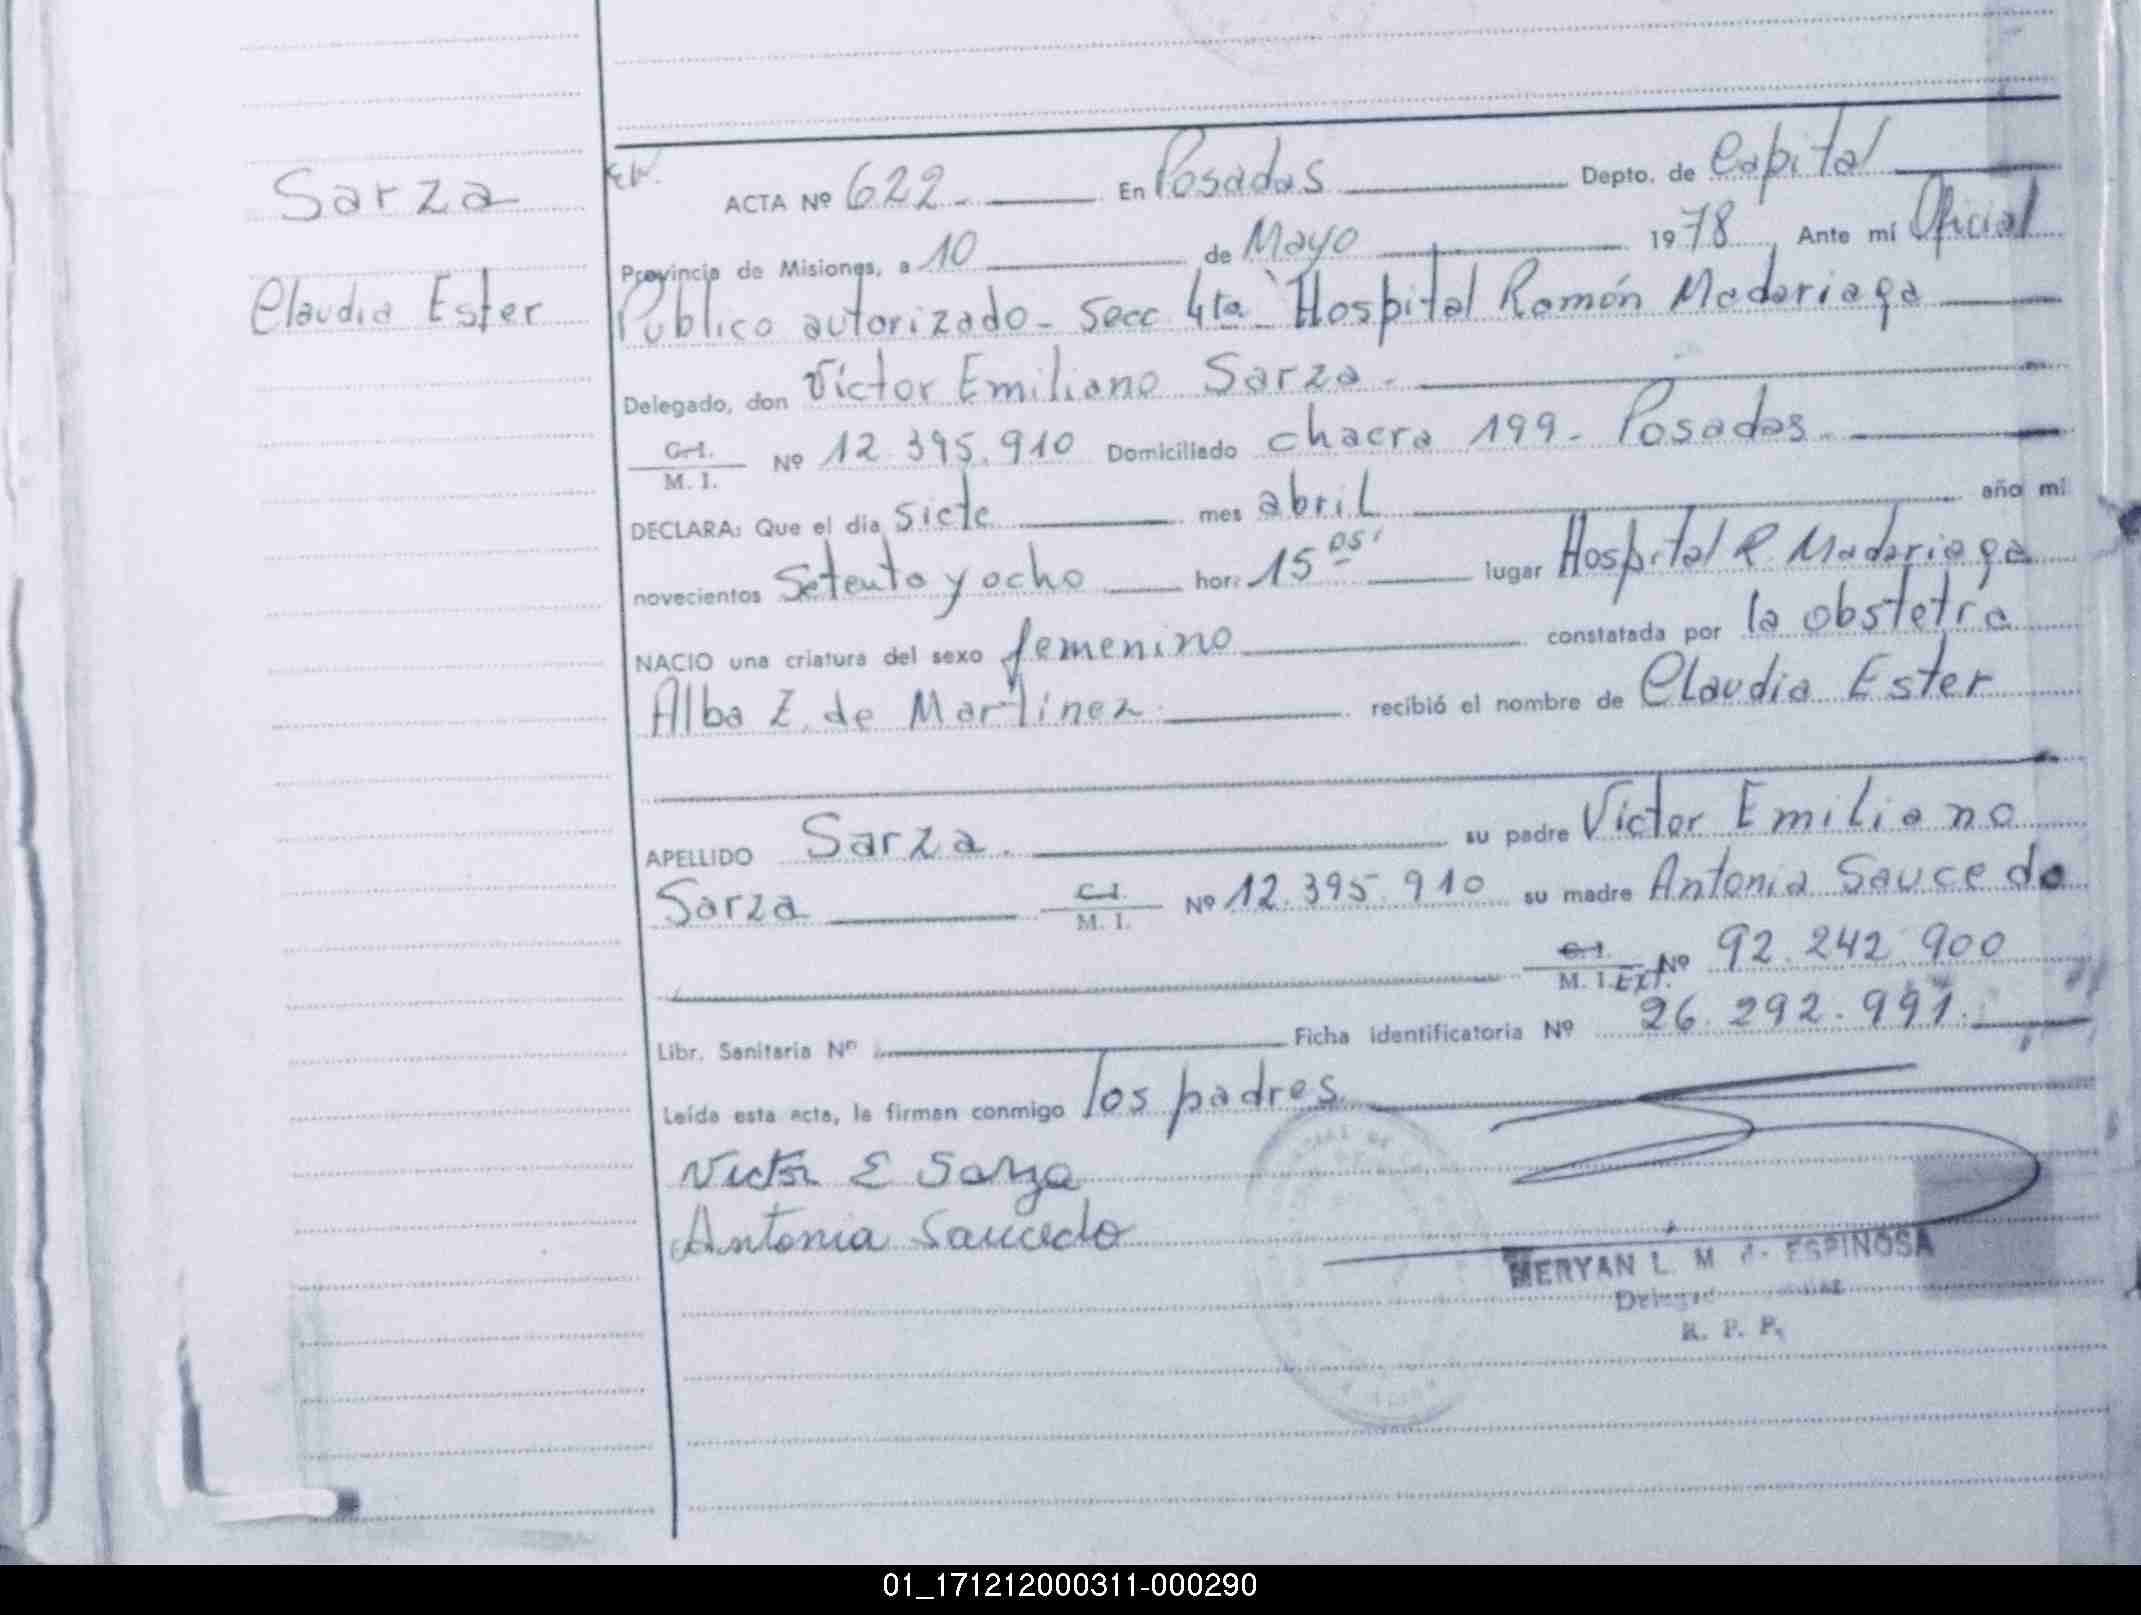 Sarza
Claudia Ester
ACTA Nº 622 En Posadas Depto. de Capital
Provincia de Misiones, a 10 de Mayo 1978, Ante mí Oficial
Público autorizado - Secc 4ta - Hospital Ramón Madariaga
Delegado, don Victor Emiliano Sarza -
C. I. / M. I. Nº 12.395.910 Domiciliado chacra 199 - Posadas -
DECLARA: Que el día siete mes abril año mi
novecientos Setenta y ocho hora 15 05' lugar Hospital R. Madariaga
NACIO una criatura del sexo femenino constatada por la obstetra
Alba Z. de Martinez recibió el nombre de Claudia Ester
APELLIDO Sarza. su padre Victor Emiliano
Sarza C. I. / M. I. Nº 12.395.910 su madre Antonia Saucedo
C. I. / M. I. Ext. Nº 92.242.900
Libr. Sanitaria Nº Ficha identificatoria Nº 26.292.991.
Leída esta acta, la firman conmigo los padres
Victor E Sarza
Antonia Saucedo
MERYAN L. M. de ESPINOSA
R. P. P.
01_171212000311-000290